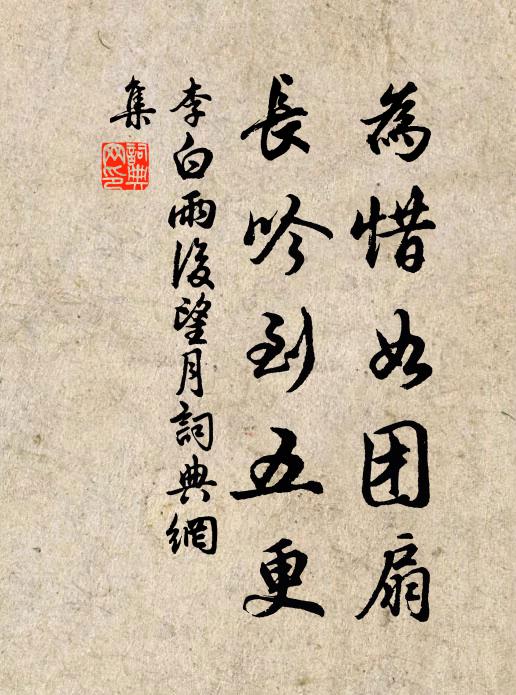 為惜如团扇
長吟到五更
李白雨後望月詞典網
集
詞典
网印